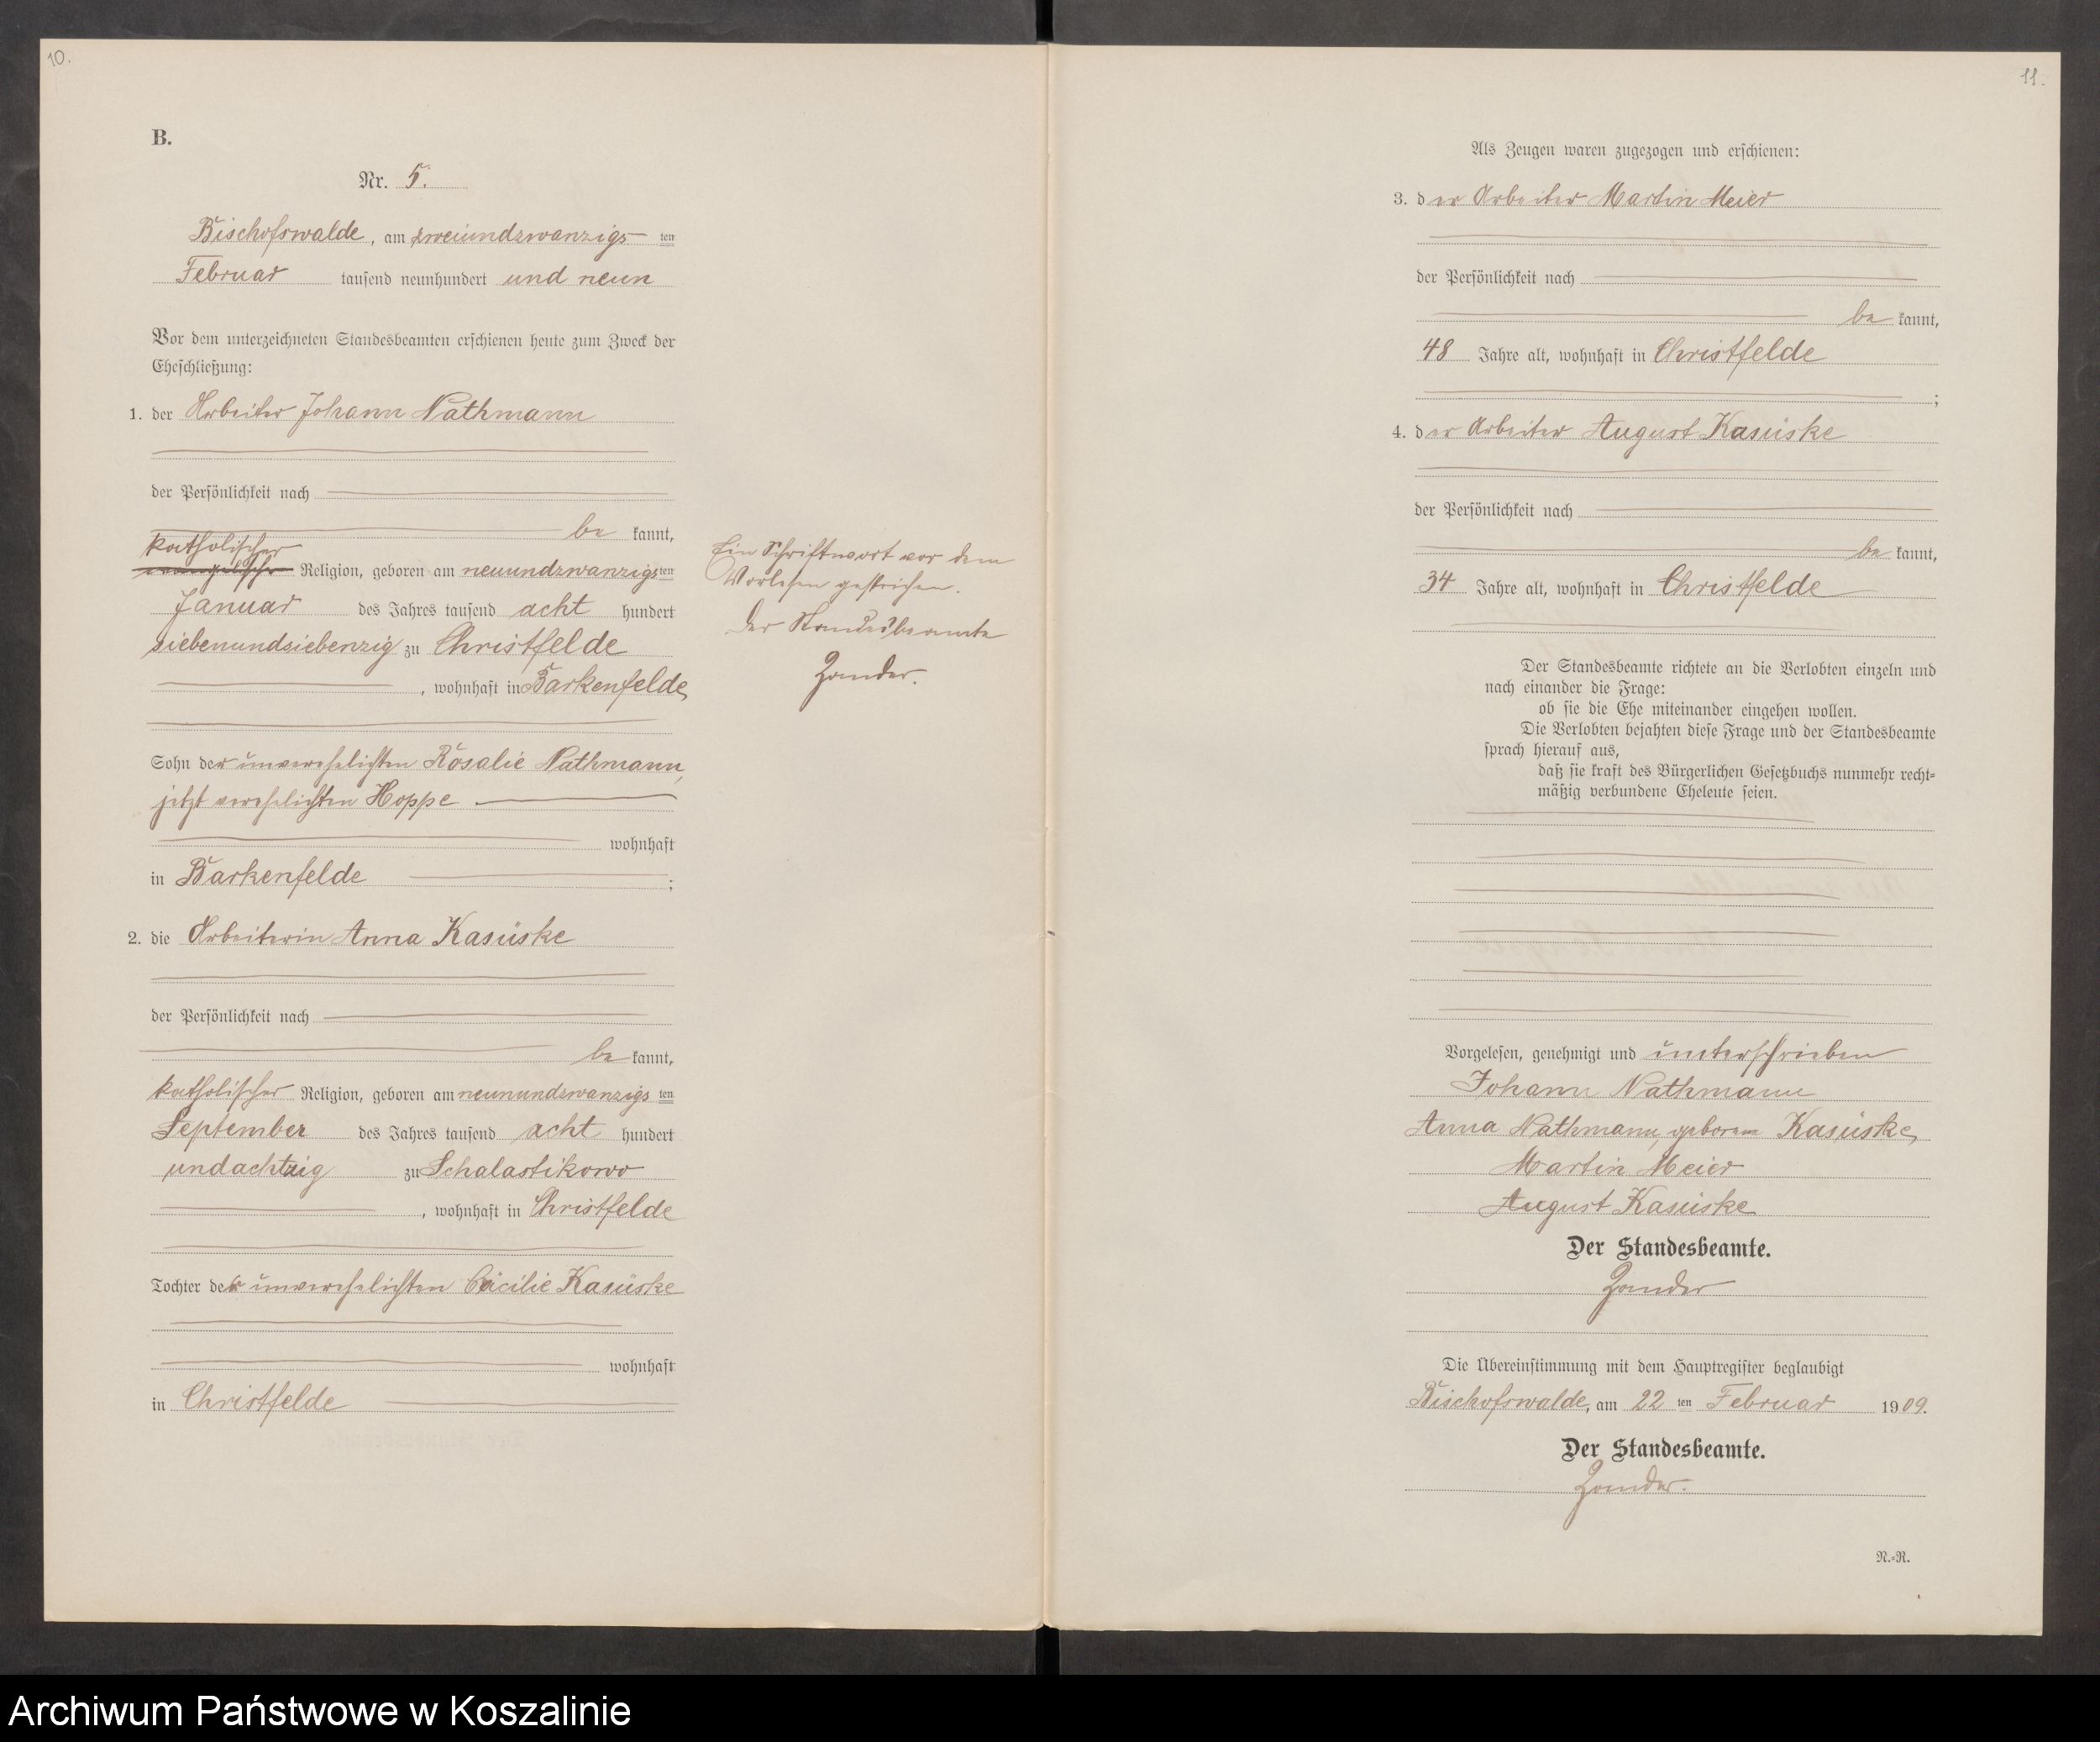 10.
B.
Nr. 5.
Bischofswalde, am zweiundzwanzigs ten
Februar tausend neunhundert und neun
Vor dem unterzeichneten Standesbeamten erschienen heute zum Zweck der
Eheschließung:
1. der Arbeiter Johann Nathmann
der Persönlichkeit nach
be kannt,
katholischer
evangelischer Religion, geboren am neuundzwanzigs ten
Januar des Jahres tausend acht hundert
siebenundsiebenzig zu Christfelde
, wohnhaft in Barkenfelde,
Sohn der unverehelichten Rosalie Nathmann,
jetzt verehelichten Hoppe
wohnhaft
in Barkenfelde ;
2. die Arbeiterin Anna Kasüske
der Persönlichkeit nach
be kannt,
katholischer Religion, geboren am neunundzwanzigs ten
September des Jahres tausend acht hundert
undachtzig zu Schalastikowo
, wohnhaft in Christfelde
Tochter der unverehelichten Cäcilie Kasüske
wohnhaft
in Christfelde
Ein Schriftwort vor dem
Vorlesen gestrichen.
Der Standesbeamte
Zander.
11.
Als Zeugen waren zugezogen und erschienen:
3. der Arbeiter Martin Meier
der Persönlichkeit nach
be kannt,
48 Jahre alt, wohnhaft in Christfelde
;
4. der Arbeiter August Kasüske
der Persönlichkeit nach
be kannt,
34 Jahre alt, wohnhaft in Christfelde
Der Standesbeamte richtete an die Verlobten einzeln und
nach einander die Frage:
ob sie die Ehe miteinander eingehen wollen.
Die Verlobten bejahten diese Frage und der Standesbeamte
sprach hierauf aus,
daß sie kraft des Bürgerlichen Gesetzbuchs nunmehr recht-
mäßig verbundene Eheleute seien.
Vorgelesen, genehmigt und unterschrieben
Johann Nathmann
Anna Nathmann, geborene Kasüske,
Martin Meier
August Kasüske
Der Standesbeamte.
Zander
Die Übereinstimmung mit dem Hauptregister beglaubigt
Bischofswalde, am 22 ten Februar 1909.
Der Standesbeamte.
Zander.
N.-R.
Archiwum Państwowe w Koszalinie